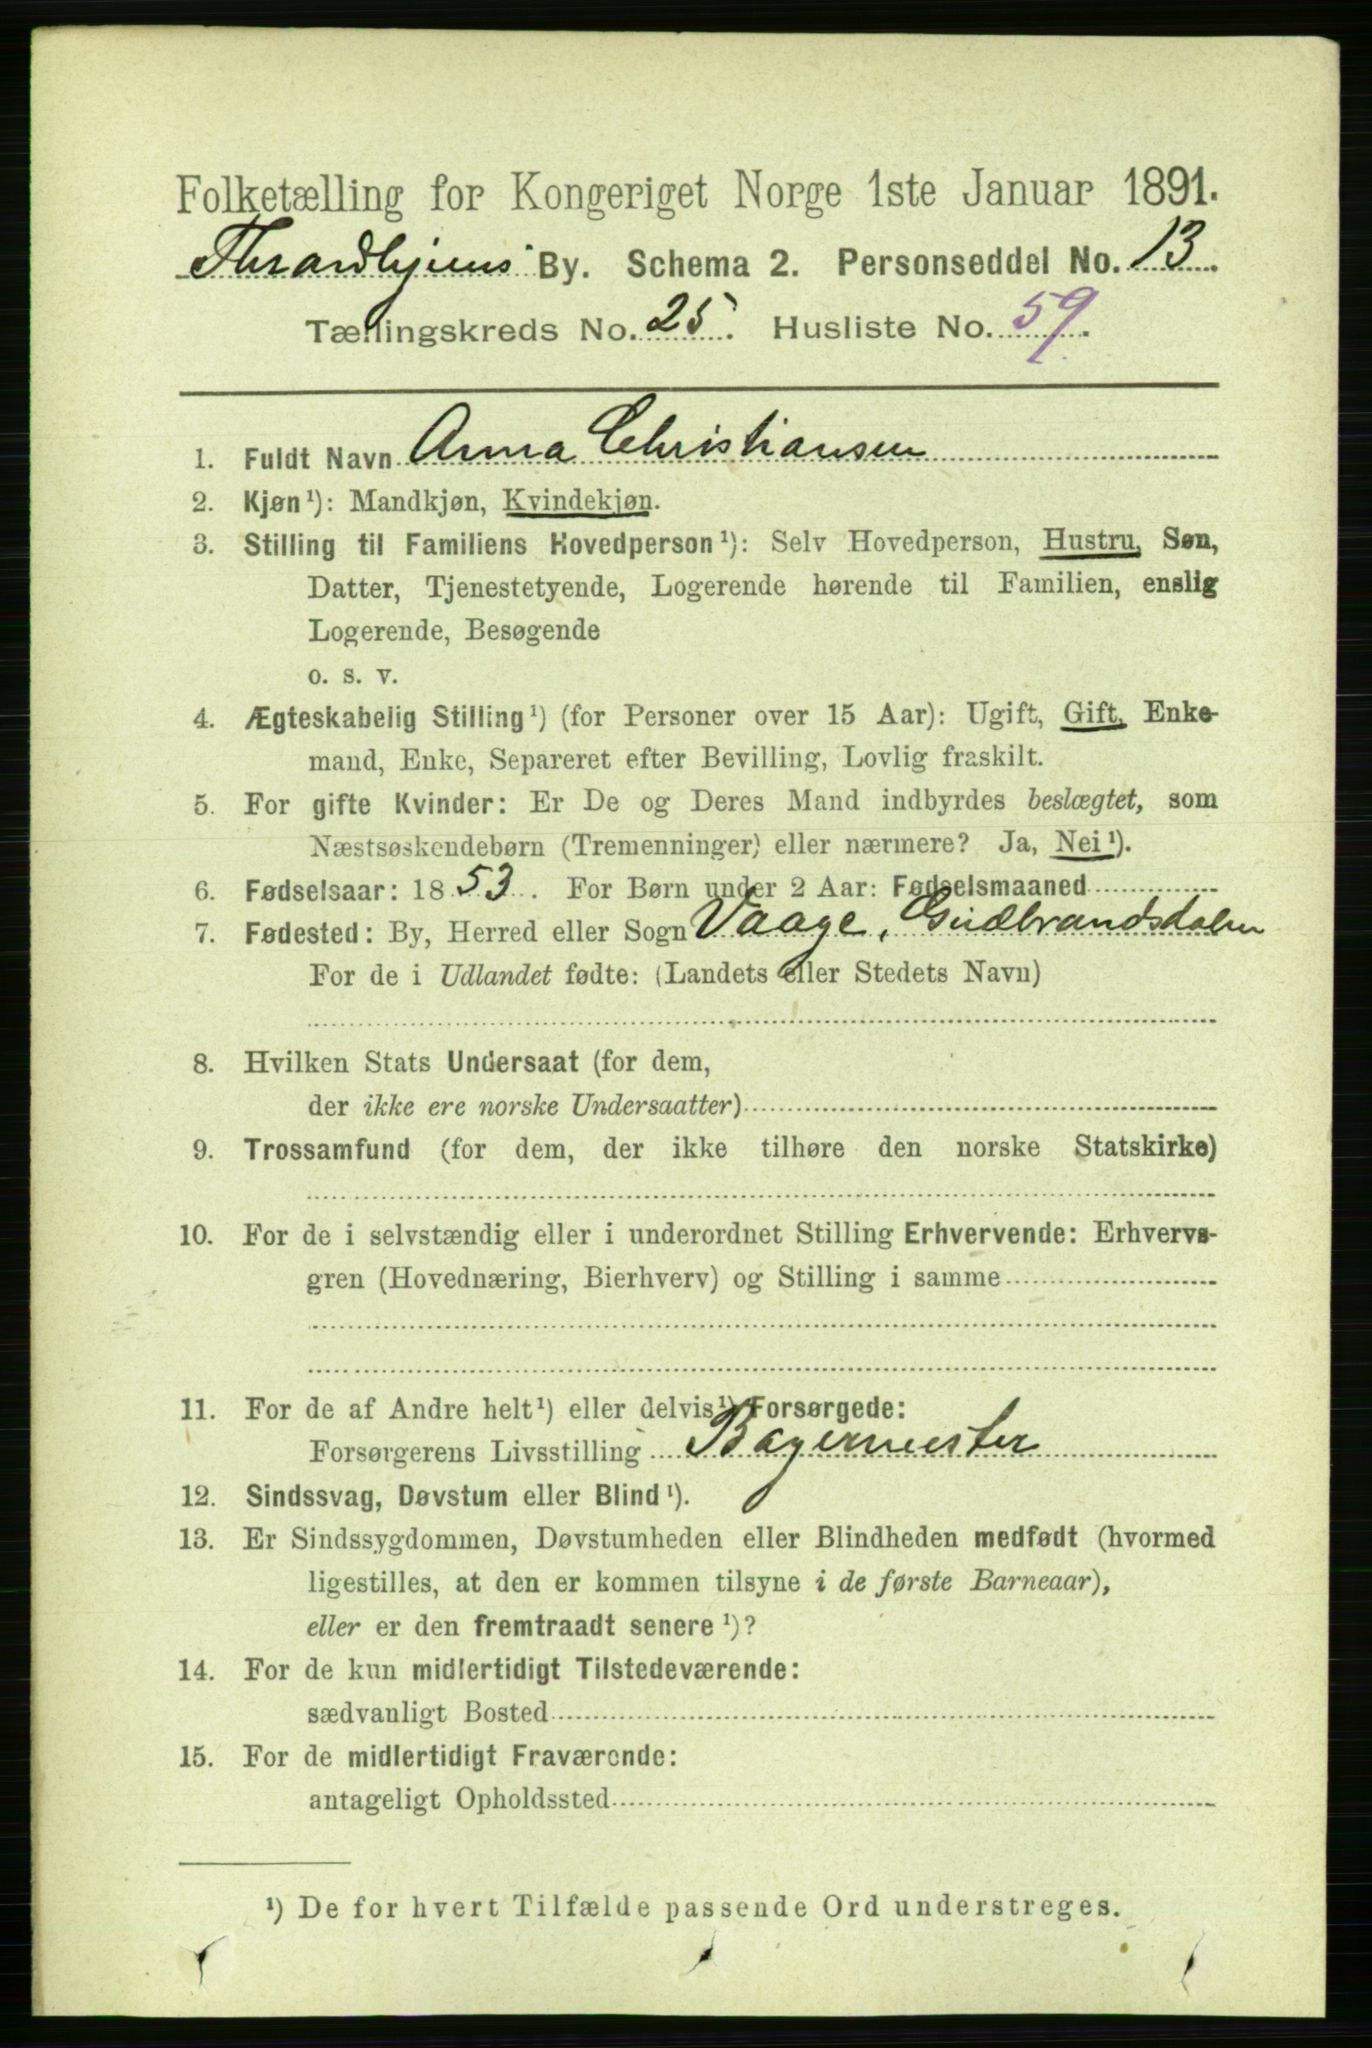 Folketælling for Kongeriget Norge 1ste Januar 1891.
Throndhjems By. Schema 2. Personseddel No. 13.
Tællingskreds No. 25. Husliste No. 59.
1. Fuldt Navn Anna Christiansen
2. Kjøn¹): Mandkjøn, Kvindekjøn.
3. Stilling til Familiens Hovedperson¹): Selv Hovedperson, Hustru, Søn,
Datter, Tjenestetyende, Logerende hørende til Familien, enslig
Logerende, Besøgende
o. s. v.
4. Ægteskabelig Stilling¹) (for Personer over 15 Aar): Ugift, Gift, Enke-
mand, Enke, Separeret efter Bevilling, Lovlig fraskilt.
5. For gifte Kvinder: Er De og Deres Mand indbyrdes beslægtet, som
Næstsøskendebørn (Tremenninger) eller nærmere? Ja, Nei¹).
6. Fødselsaar: 1853. For Børn under 2 Aar: Fødselsmaaned
7. Fødested: By, Herred eller Sogn Vaage, Gudbrandsdalen
For de i Udlandet fødte: (Landets eller Stedets Navn)
8. Hvilken Stats Undersaat (for dem,
der ikke ere norske Undersaatter)
9. Trossamfund (for dem, der ikke tilhøre den norske Statskirke)
10. For de i selvstændig eller i underordnet Stilling Erhvervende: Erhvervs-
gren (Hovednæring, Bierhverv) og Stilling i samme
11. For de af Andre helt¹) eller delvis¹) Forsørgede:
Forsørgerens Livsstilling Bagermester
12. Sindssvag, Døvstum eller Blind¹).
13. Er Sindssygdommen, Døvstumheden eller Blindheden medfødt (hvormed
ligestilles, at den er kommen tilsyne i de første Barneaar),
eller er den fremtraadt senere¹)?
14. For de kun midlertidigt Tilstedeværende:
sædvanligt Bosted
15. For de midlertidigt Fraværende:
antageligt Opholdssted
¹) De for hvert Tilfælde passende Ord understreges.